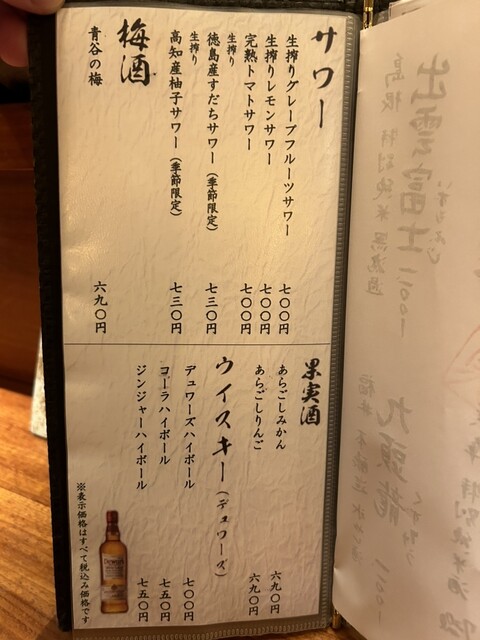 サワー
生搾りグレープフルーツサワー 七〇〇円
生搾りレモンサワー 七〇〇円
完熟トマトサワー 七〇〇円
生搾り
徳島産すだちサワー(季節限定) 七三〇円
生搾り
高知産柚子サワー(季節限定) 七三〇円
梅酒
青谷の梅 六九〇円
果実酒
あらごしみかん 六九〇円
あらごしりんご 六九〇円
ウイスキー(デュワーズ)
デュワーズハイボール 七〇〇円
コーラハイボール 七五〇円
ジンジャーハイボール 七五〇円
※表示価格はすべて税込み価格です
DEWAR'S
出雲富士
いずもふじ
島根 特別純米
九頭龍
くずりゅう